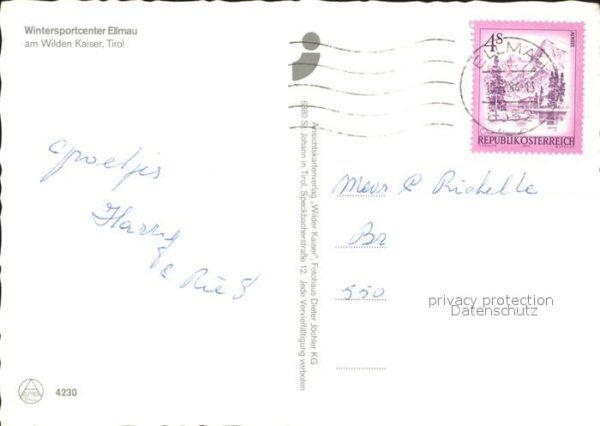 Wintersportcenter Ellmau
am Wilden Kaiser, Tirol
4S
ALMSEE
REPUBLIK ÖSTERREICH
ELLMAU
6352
groetjes
Harry
& Rie
Ansichtskartenverlag „Wilder Kaiser", Fotohaus Dieter Jöchler KG
6380 St. Johann in Tirol, Speckbacherstraße 12. Jede Vervielfältigung verboten
Mevr
Br
550
privacy protection
Datenschutz
4230